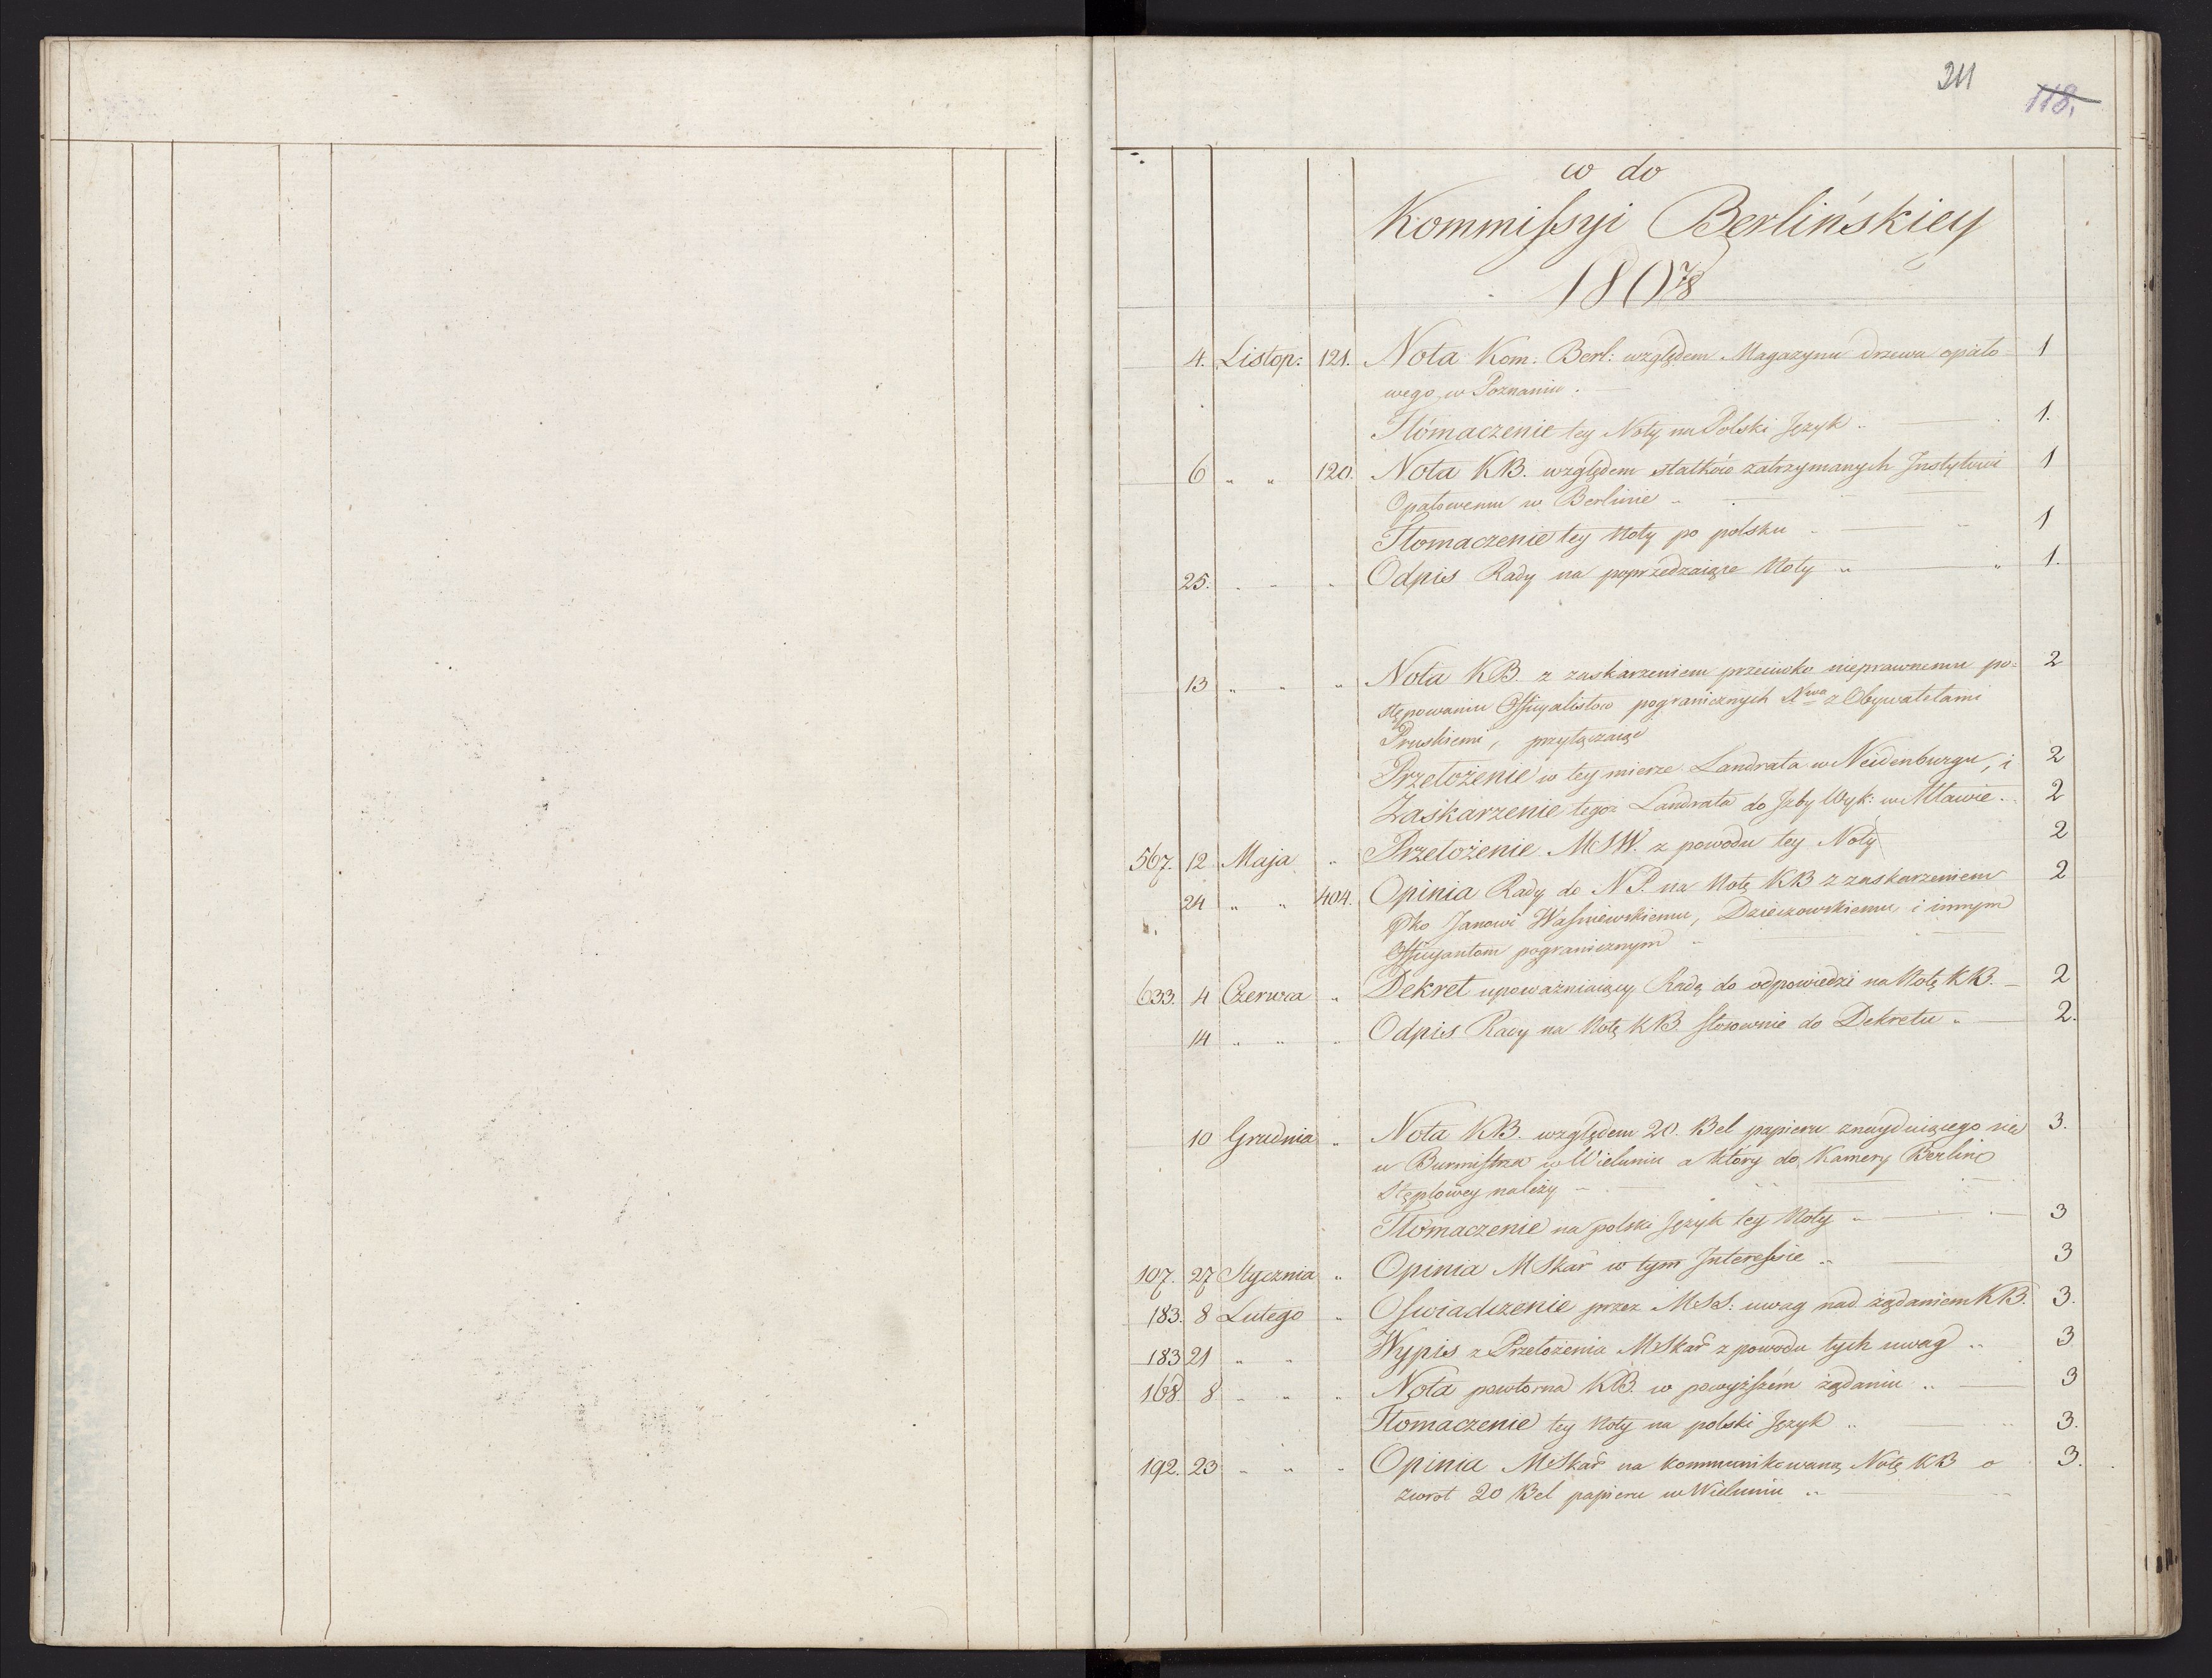 211
118.
co do
Kommissyi Berlińskiey
180 7/8
4. Listop: 121. Nota Kom. Berl: względem Magazynu drzewa opało= 1
wego w Poznaniu.
Tłómaczenie tey Noty na Polski Język .. 1.
6 " " 120. Nota KB. względem statków zatrzymanych Instytutowi 1
Opałowemu w Berlinie ..
Tłomaczenie tey Noty po polsku .. 1
25. " " " Odpis Rady na poprzedzaiące Noty " " 1.
13 " " " Nota KB. z zaskarzeniem przeciwko nieprawnemu po= 2
stępowaniu Officyalistow pogranicznych Nwa z Obywatelami
Pruskiemi, przyłączaiąc
Przełożenie w tey mierze Landrata w Neidenburgu, i 2
Zaskarzenie tegoż Landrata do Izby Wyk: w Mławie .. 2
567. 12 Maja " Przełożenie MSW. z powodu tey Noty 2
24 " " 404. Opinia Rady do NP. na Notę KB z zaskarzeniem 2
Pko Janowi Waśniewskiemu, Dzieczowskiemu i innym
Officyantom pogranicznym "
633. 4 Czerwca " Dekret upoważniaiący Radę do odpowiedzi na Notę KB. 2
14 " " " Odpis Rady na Notę KB. stosownie do Dekretu " 2.
10 Grudnia " Nota KB. względem 20. Bel papieru znayduiącego się 3.
u Burmistrza w Wieluniu a który do Kamery Berlino
Stęplowey należy
Tłomaczenie na polski Język tey Noty " 3
107. 27 Stycznia " Opinia MSkar w tym Interessie .. 3
183. 8 Lutego " Oswiadczenie przez MSS: uwag nad żądaniem KB. 3.
183 21 " " Wypis z Przełożenia MSkar z powodu tych uwag .. 3
168. 8 " " " Nota powtorna KB. w powyższém żądaniu .. 3
Tłomaczenie tey Noty na polski Język .. 3.
192. 23 " " " Opinia MSkar na kommunikowaną Notę KB o 3.
zwrot 20 Bel papieru w Wieluniu ..